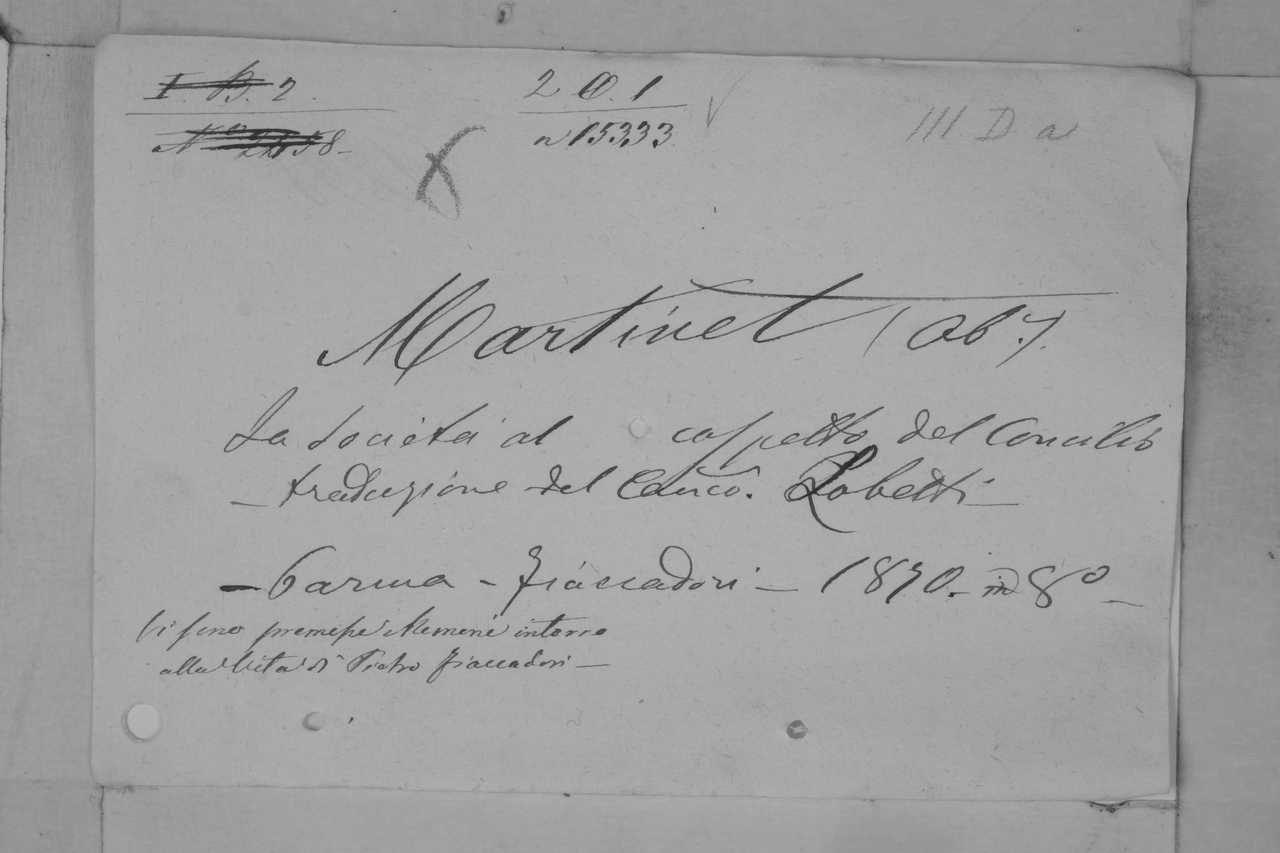 I. B. 2.
2 O. 1
III D a
n 15333
Martinet (ab.)
La Società al cospetto del Concilio
— traduzione del Canco. Lobetti —
— Parma — Fiaccadori — 1870. in 8º —
Vi sono premesse Memorie intorno
alla Vita di Pietro Fiaccadori —